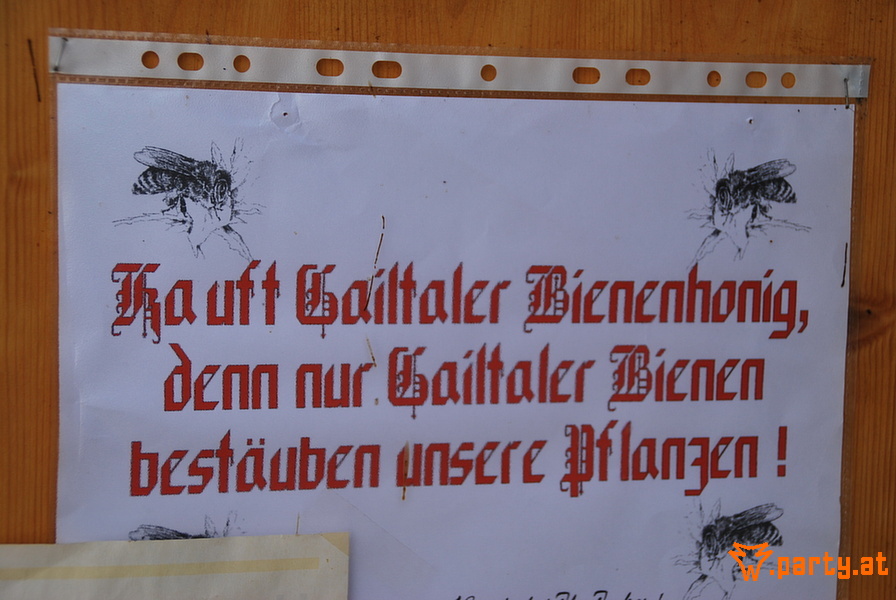 Kauft Gailtaler Bienenhonig,
denn nur Gailtaler Bienen
bestäuben unsere Pflanzen !
w.party.at